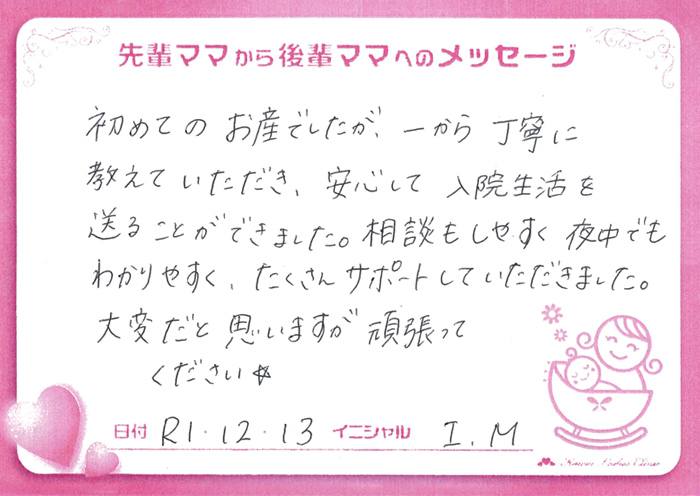 先輩ママから後輩ママへのメッセージ
初めての お産でしたが、一から 丁寧に
教えていただき、安心して 入院生活を
送ることができました。相談もしやすく 夜中でも
わかりやすく、たくさんサポートしていただきました。
大変だと思いますが 頑張って
ください☆
日付 R1・12・13 イニシャル I.M